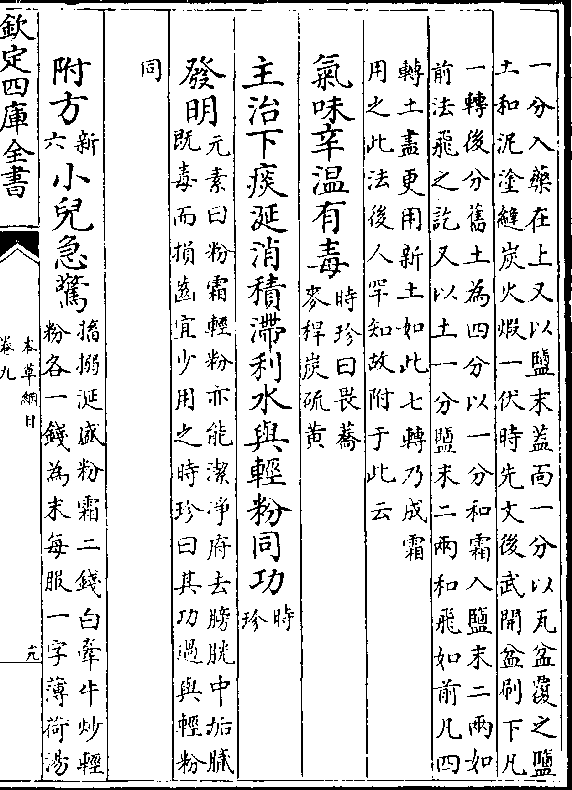 一分入藥在上又以鹽末蓋面一分以瓦盆覆之鹽
土和泥塗縫炭火煆一伏時先文後武開盆刷下凡
一轉後分舊土為四分以一分和霜入鹽末二兩如
前法飛之訖又以土一分鹽末二兩和飛如前凡四
轉土盡更用新土如此七轉乃成霜
用之此法後人罕知故附于此云
氣味辛温有毒 時珍曰畏蕎
麥稈炭硫黄
主治下痰涎消積滯利水與輕粉同功 時
珍
發明 元素曰粉霜輕粉亦能潔凈府去膀胱中垢膩
既毒而損齒宜少用之時珍曰其功過與輕粉
同
附方 新
六 小兒急驚 搐搦涎盛粉霜二錢白牽牛炒輕
粉各一錢為末每服一字薄荷湯
欽定四庫全書
本草綱目
卷九